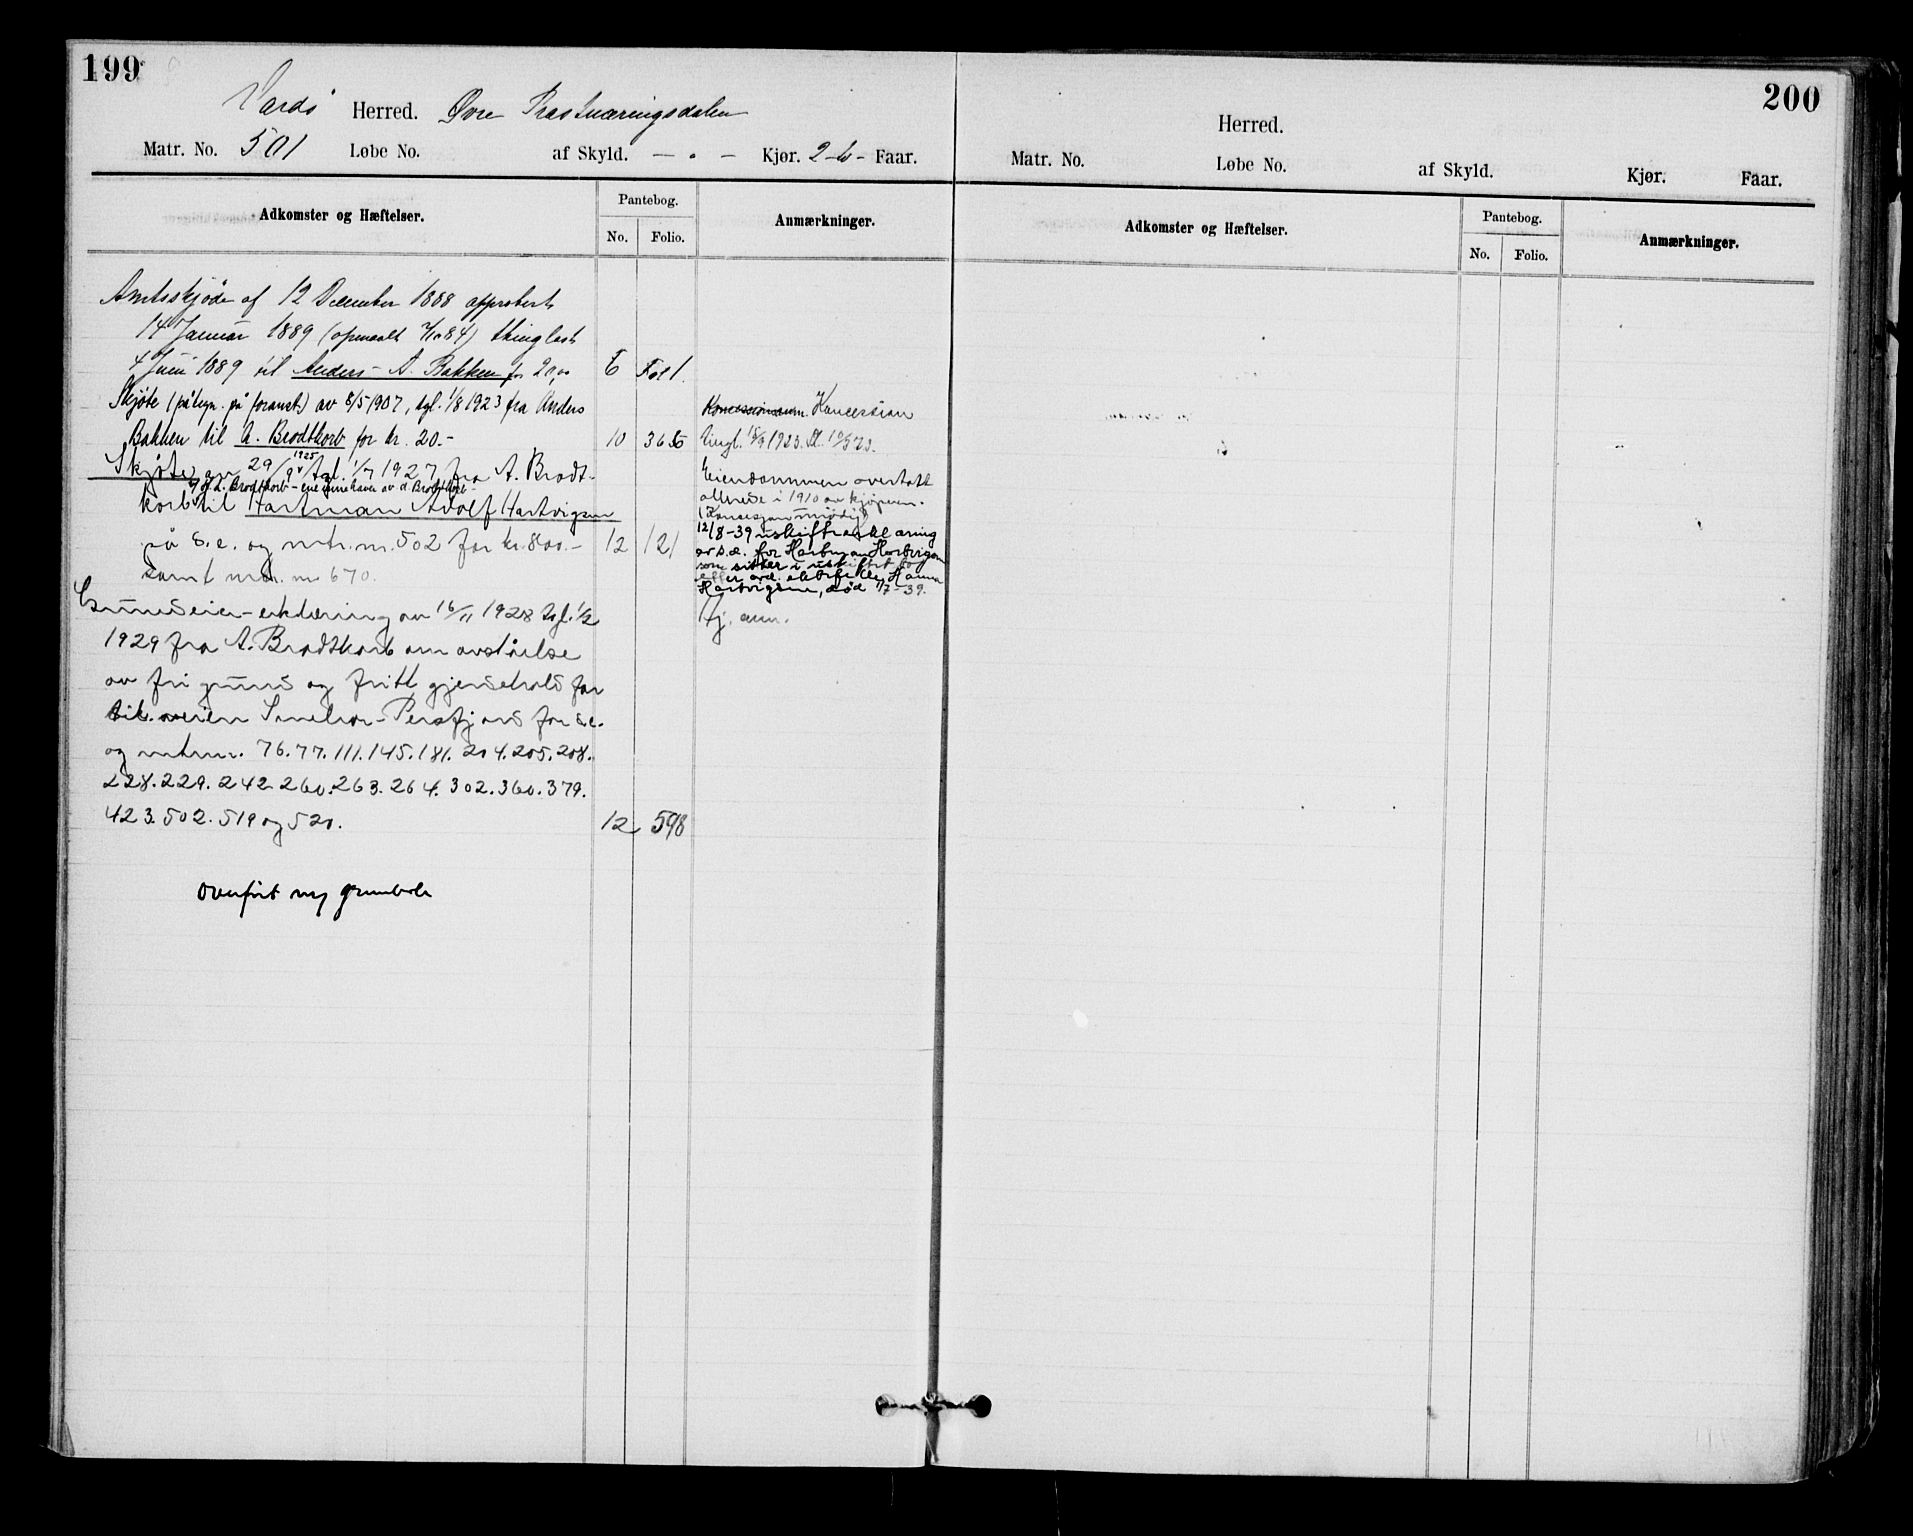 199
Vardø Herred. Øvre Præstnæringsdalen
Matr. No. 501 Løbe No. af Skyld. — " — Kjør. 2-6- Faar.
Adkomster og Hæftelser. Pantebog. Anmærkninger.
No. Folio.
Amtsskjøde af 12 December 1888 approbert
14 Januar 1889 (opmaalt 84) thinglæst
4 Juni 1889 til Anders A. Bakken for 20,00 6 Fol 1.
Skjøte (påtegn. på foranst.) av 8/5 1907, tgl. 1/8 1923 fra Anders
Bakken til A. Brodtkorb for kr. 20.- 10 365
Skjøte av 29/9 1925 tgl. 1/7 1927 fra A. Brodt-
v/ A. Brodtkorb - eneinnehaver av A. Brodtkorb -
korb til Hartman Adolf Hartvigsen
på d.e. og mtr. nr. 502 for kr. 800.- 12 121
samt mtr. nr 670.
Grunneier-erklæring av 16/11 1928 tgl. 1/2
1929 fra A. Brodtkorb om avståelse
av fri grunn og fritt gjerdehold for
veien Smelror-Persfjord for d.e.
og mtrnr. 76.77.111.145.181.204.205.208.
228.229.242.260.263.264.302.360.379.
423.502.519 og 520. 12 598
overført ny grunnbok
Koncession
tingl. 15/9 1923.
Eiendommen overtatt
allerede i 1910 av kjøperen.
(Koncesjon unødig)
12/8-39 uskifteerklæring
av d.e. for Hartman Hartvigsen
som sitter i uskiftet bo
efter avd. ektefelle Hanna
Hartvigsen, død 1/7-39.
Hj. ann.
200
Herred.
Matr. No. Løbe No. af Skyld. Kjør. Faar.
Adkomster og Hæftelser. Pantebog. Anmærkninger.
No. Folio.